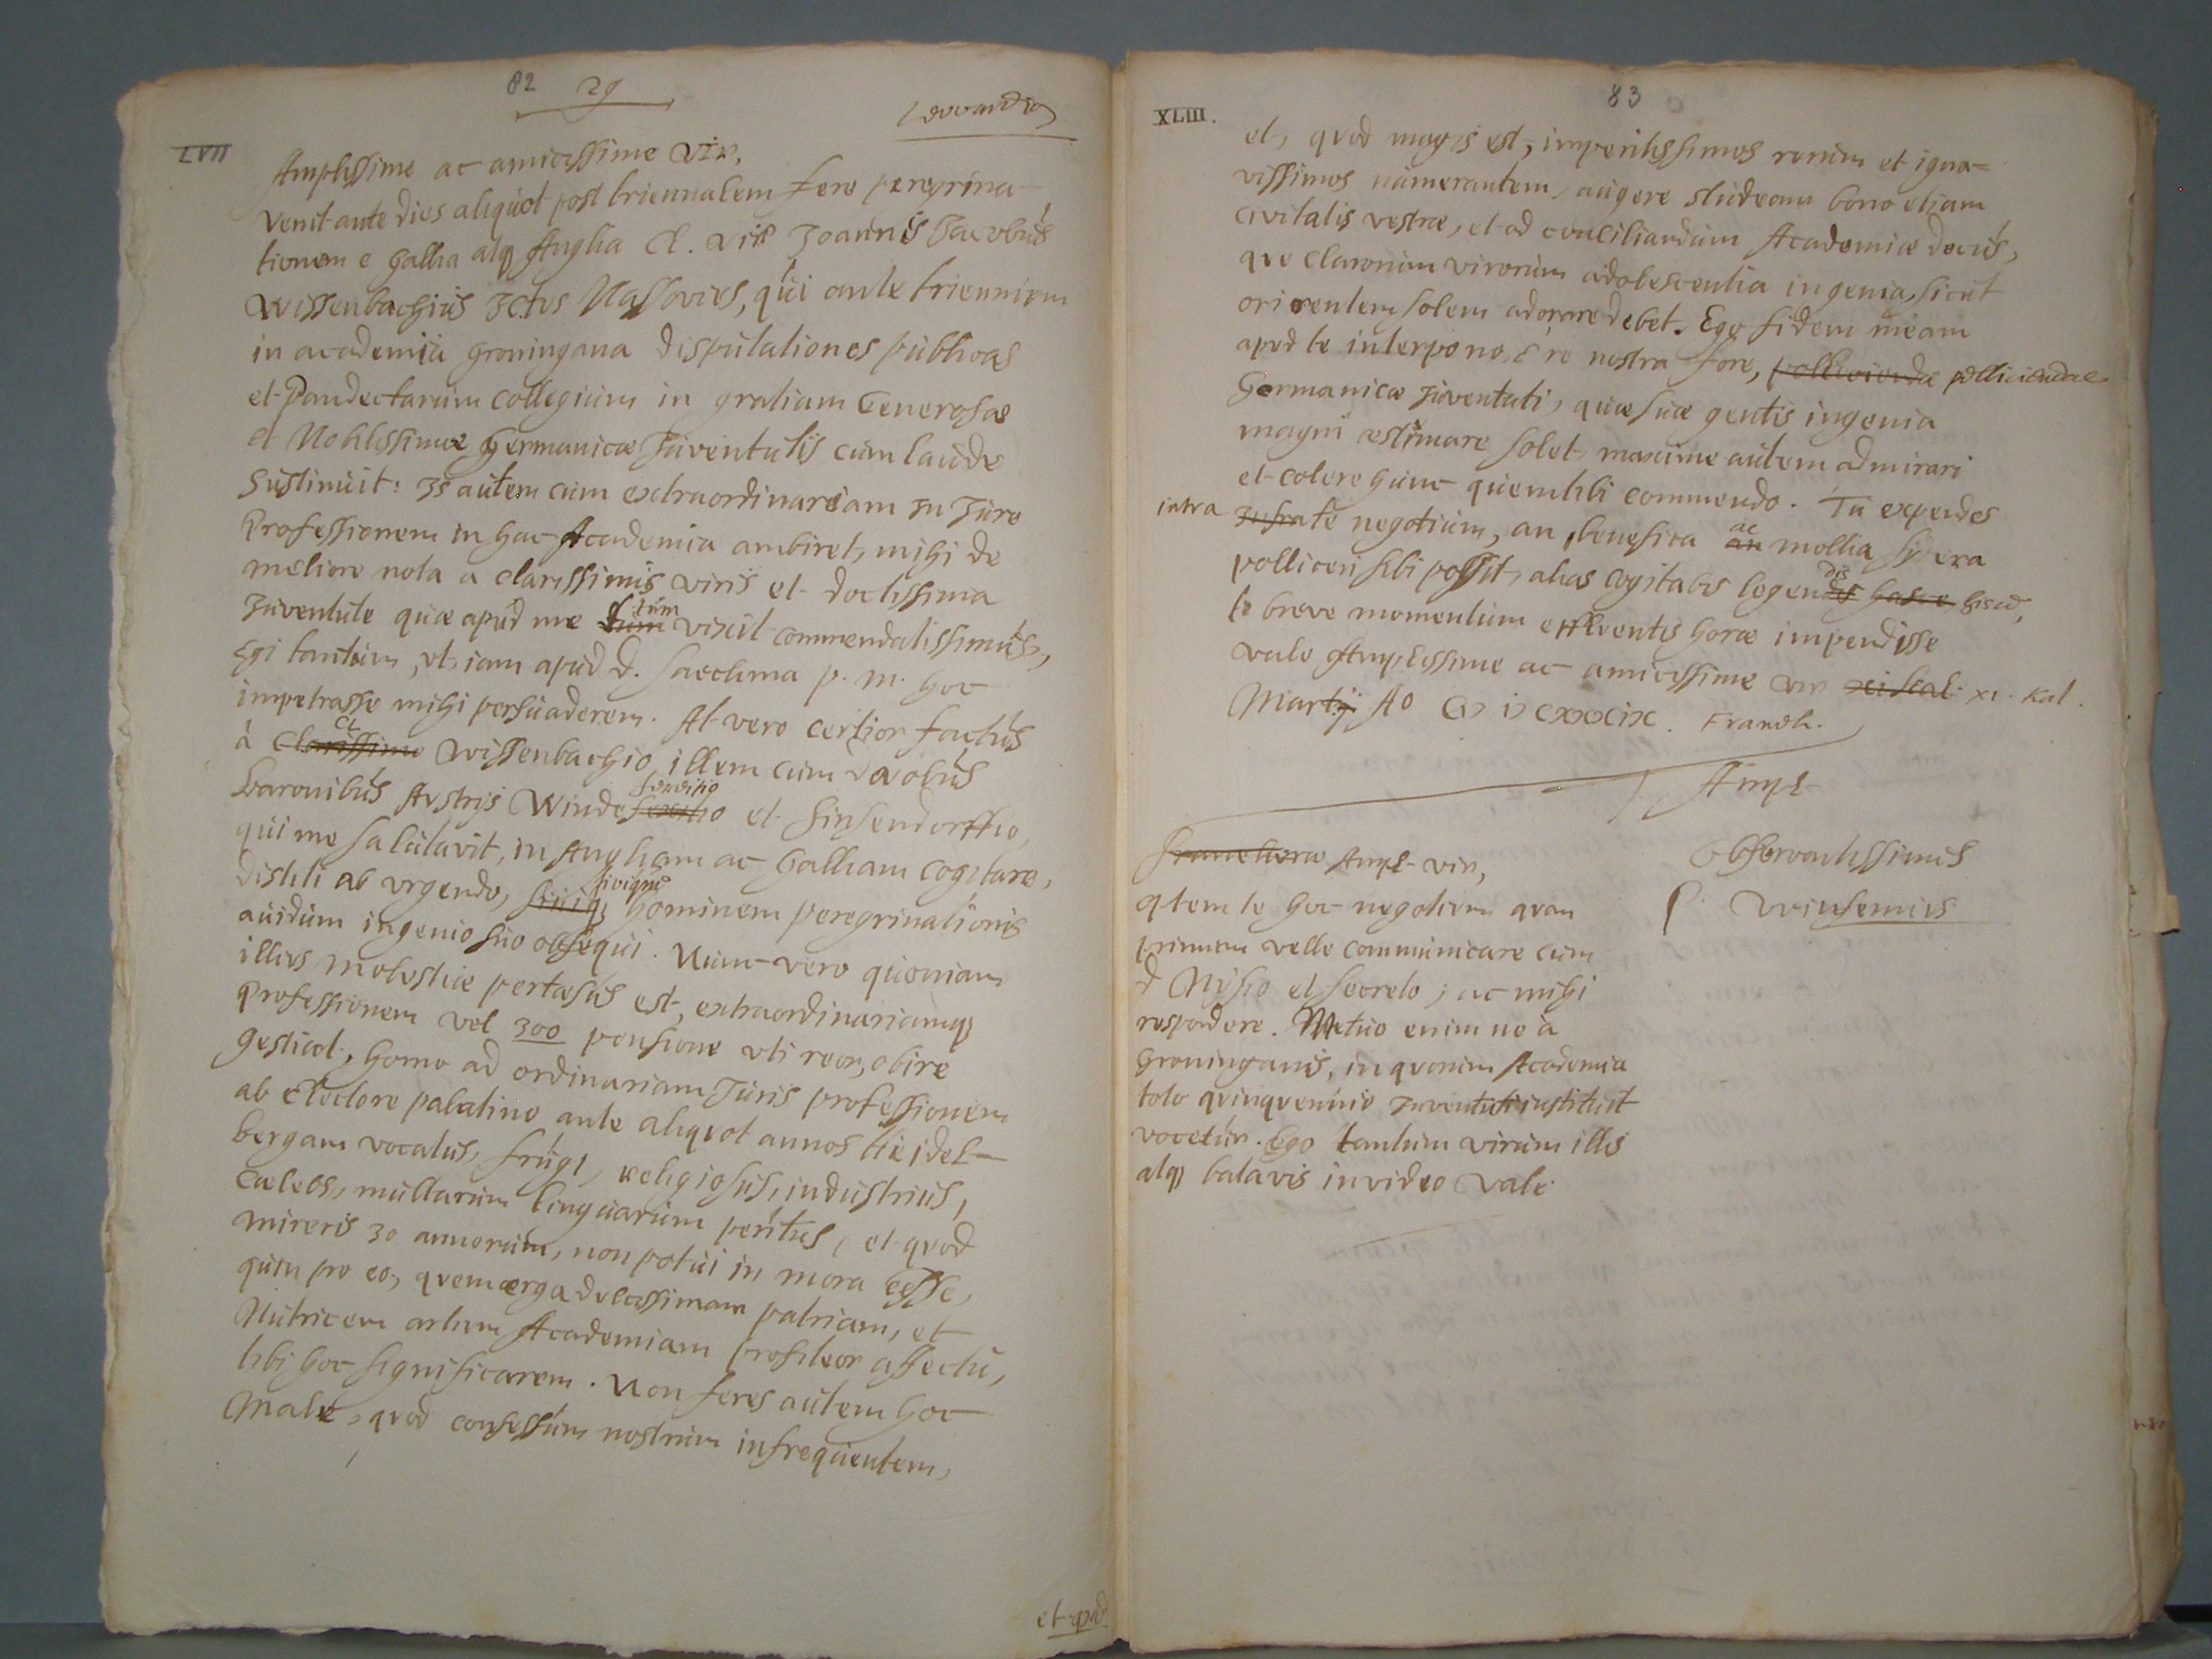 82 29
Leovardia
LVII
Amplissime ac amicissime Vir,
Venit ante dies aliquot post triennalem fere peregrina-
tionem e Gallia atq Anglia Cl. Vir Joannis Jacobus
Wissenbachius JCtus Nassovius, qui ante triennium
in academia Groningana Disputationes publicas
et Pandectarum Collegium in gratiam Generosae
et Nobilissimae Germanicae Juventutis cum laude
Sustinuit: Is autem cum extraordinariam in Jure
Professionem in hac Academia ambiret, mihi de
meliore nota a clarissimis viris et doctissima
Juventute quae apud me tum vixit commendatissimus,
Egi tantum, vt iam apud D. Saeckma p. m. hoc
impetrasse mihi persuaderem. At vero certior factus
à Clarissimo Cl. Wissenbachio illum cum duobus
baronibus Austrijs Windes et Sinsendorffio,
qui me salutavit, in Angliam ac Galliam cogitare,
distiti ab vrgendo, sivi q sivique hominem peregrinationis
avidum ingenio suo obsequi. Nunc vero quoniam
illius molestiae pertaesus est, extraordinariamq
Professionem vel 300 pensione vti reor, obire
gestiat, homo ad ordinariam Juris professionem
ab Electore palatino ante aliquot annos Heidel-
bergam vocatus, frugi, religiosus, industrius,
Caelebs, multarum linguarum peritus, et quod
mireris 30 annorum, non potui in mora esse,
quin pro eo, quem erga dulcissimam patriam, et
Nutricem artium Academiam profiteor affectu,
tibi hoc significarem. Non feres autem hoc
Male, quod consessum nostrum infrequentem,
et quod
83
XLIII.
et, quod magis est, imperitissimos rerum et igna-
vissimos numerantem, augere studeam bono etiam
civitatis vestrae, et ad conciliandum Academiae decus,
que clarorum virorum adolescentia ingenia, sicut
orientem solem adorare debet. Ego fidem meam
apud te interpono, è re nostra fore, polliciendae pelliciendae
Germanicae Juventuti, quae suae gentis ingenia
magni aestimare solet, maxime autem admirari
et colere hunc quem tibi commendo. Tu expendes
intra Infra te negotium, an benefica an ac mollia sidera
polliceri sibi possit, alias cogitabis legendis dis hasce hisce,
te breve momentum effluentis horae impendisse
vale Amplissime ac amicissime vir xi Kal xi. Kal.
Martij Ao CIↃ IↃ CXXXIX. Franek.
Ampl.
Observantissimus
P. Winsemius
Franekerae Ampl. vir,
autem te hoc negotium quam
primum velle communicare cum
D Nysio et secreto; ac mihi
respondere. Metuo enim ne à
Groninganis, in quorum Academia
toto quinquennio Juventuti instituit
vocetur. Ego tantum virum illis
atq batavis invideo Vale